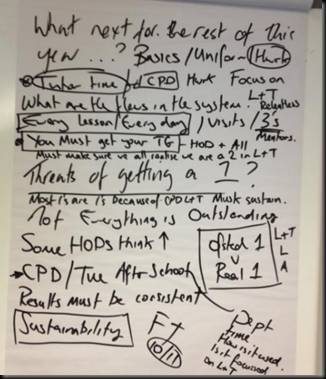 What next for the rest of this
year...? Basics/Uniform Hurk
Tutor time / CPD Hurk Focus on
What are the flaws in the system. L+T Relentless
Every lesson/Every day / Visits / 3's Mentors.
You Must get your TG HOD + All
Must make sure we all realise we are a 2 in L+T
Threats of getting a 1 ?
Most 1's are 1's because of CPD L+T Musk sustain.
Not Everything is Outstanding
Some HODs think ↑
Ofsted 1
V
Real 1
L+T
L
A
→ CPD/Tue After School
Results must be consistent
Sustainability
F+
10/11
Dept
time
How is it used.
Is it focussed
on L+T